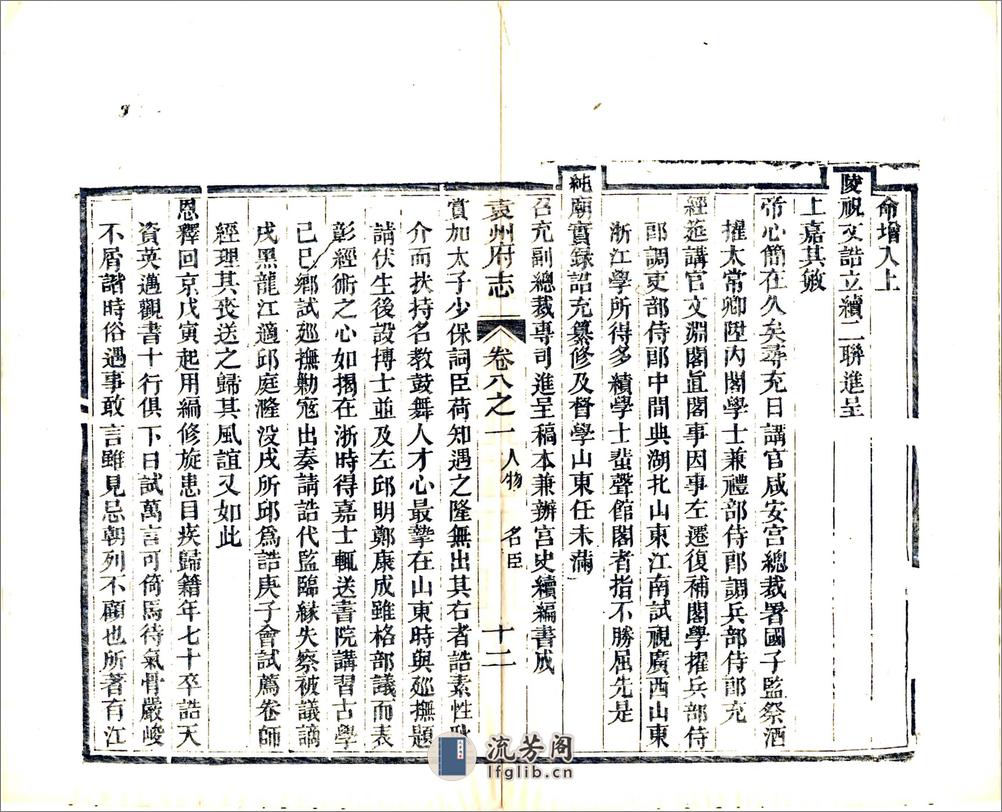 命增入上
陵祝文誥立續二聯進呈
上嘉其敏
帝心簡在久矣尋充日講官咸安宮總裁署國子監祭酒
擢太常卿陞內閣學士兼禮部侍郎調兵部侍郎充
經筵講官文淵閣直閣事因事左遷復補閣學擢兵部侍
郎調吏部侍郎中間典湖北山東江南試視廣西山東
浙江學所得多績學士蜚聲館閣者指不勝屈先是
純廟實錄詔充纂修及督學山東任未滿
召充副總裁專司進呈稿本兼辦宮史續編書成
袁州府志 卷八之一 人物 名臣 十二
賞加太子少保詞臣荷知遇之隆無出其右者誥素性耿
介而扶持名教鼓舞人才心最摯在山東時與廵撫題
請伏生後設博士並及左邱明鄭康成雖格部議而表
彰經術之心如揭在浙時得嘉士輒送書院講習古學
己巳鄉試廵撫勦寇出奏請誥代監臨緣失察被議謫
戌黑龍江適邱庭漋没戌所邱爲誥庚子會試薦卷師
經理其喪送之歸其風誼又如此
恩釋回京戊寅起用編修旋患目疾歸籍年七十卒誥天
資英邁觀書十行俱下日試萬言可倚馬待氣骨嚴峻
不屑諧時俗遇事敢言雖見忌朝列不顧也所著有江
流芳阁
lfglib.cn